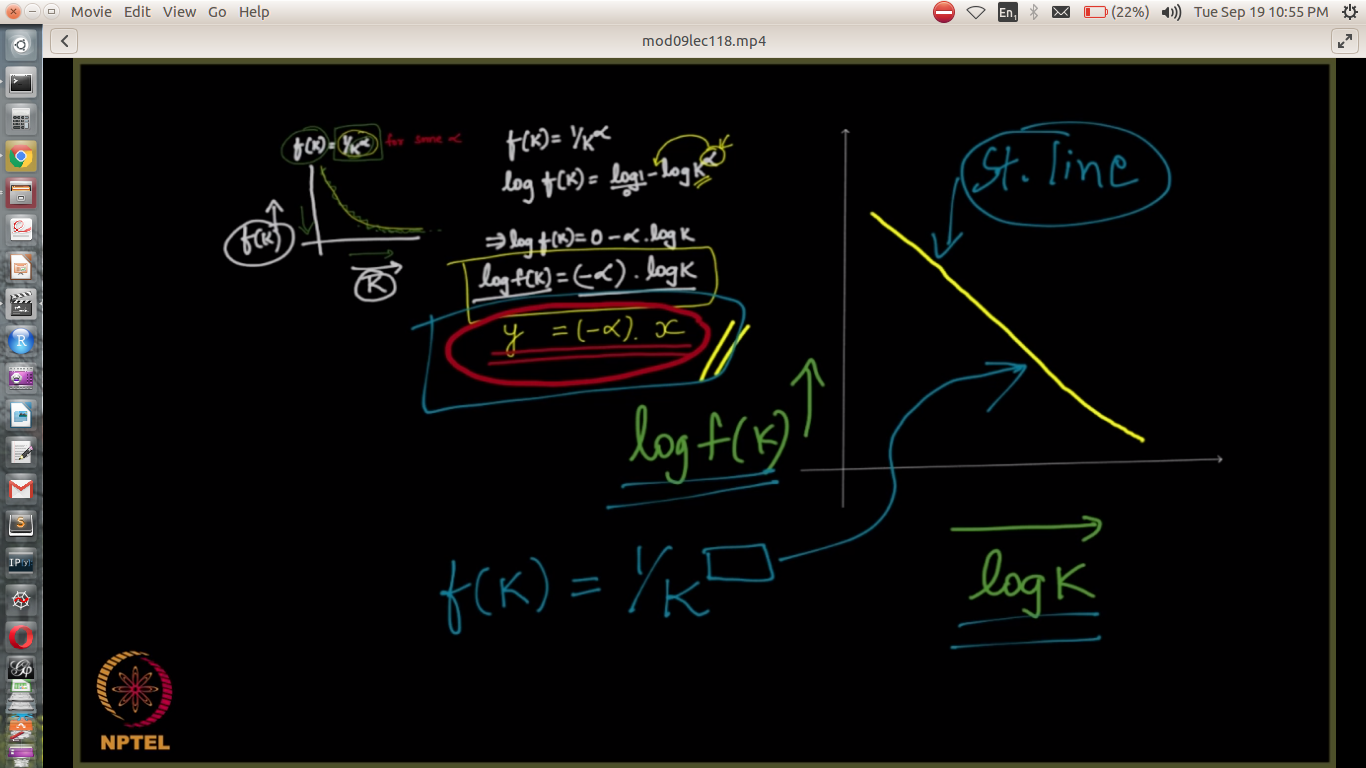 Movie Edit View Go Help
En1 (22%) Tue Sep 19 10:55 PM
mod09lec118.mp4
f(K) = 1/K^α for some α
f(K)
K
f(K) = 1/K^α
log f(K) = log1 - log K^α
0
⇒ log f(K) = 0 - α . log K
log f(K) = (-α) . log K
y = (-α) . x
St. line
log f(K)
log K
f(K) = 1/K
NPTEL